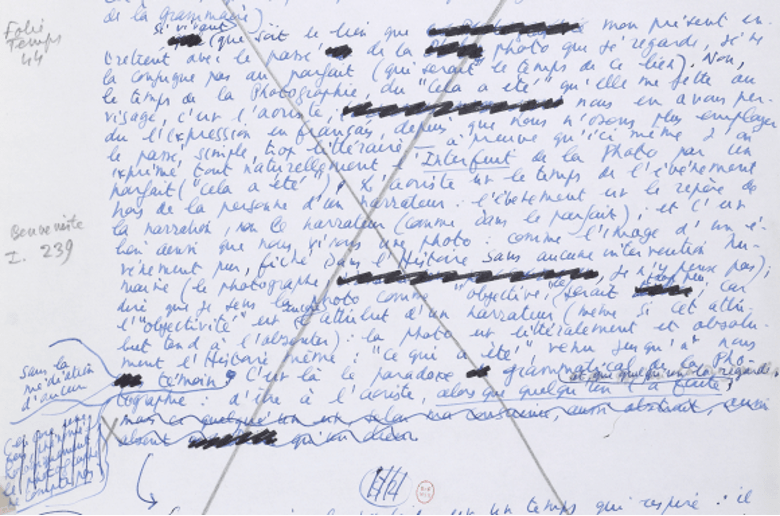 de la grammaire)
Folio
Temps
44
si vivant
(que soit le lien que mon présent en-
tretient avec le passé de la photo que je regarde, je ne
la conjugue pas au parfait (qui serait le temps de ce lien). Non,
le temps de la Photographie, du "cela a été" qu'elle me jette au
visage, c'est l'aoriste, nous en avons per-
du l'expression en français, depuis que nous n'osons plus employer
le passé simple, trop littéraire — à preuve qu'ici même j'ai
exprimé tout naturellement l'Interfuit de la Photo par un
parfait ("cela a été"). L'aoriste est le temps de l'événement
hors de la personne d'un narrateur : l'événement est le repère de
la narration, non le narrateur (comme dans le parfait) ; et c'est
Benveniste
I. 239
bien ainsi que nous vivons une photo : comme l'image d'un é-
vénement pur, fiché dans l'Histoire sans aucune intervention hu-
maine (le photographe, je n'y pense pas) ;
dire que je sens la photo comme "objective" serait trop peu, car
l'"objectivité" est l'attribut d'un narrateur (même si cet attri-
but tend à l'absenter) : la photo est littéralement et absolu-
ment l'Histoire même : "ce qui a été" venu jusqu'à nous
sans la
médiation
d'aucun
témoin. C'est là le paradoxe grammatical de la Pho-
et que quelqu'un la regarde
tographie : d'être à l'aoriste, alors que quelqu'un l'a faite,
mais ce quelqu'un est, selon ma conscience, aussi abstrait, aussi
absent qu'un dieu
un temps qui respire : il